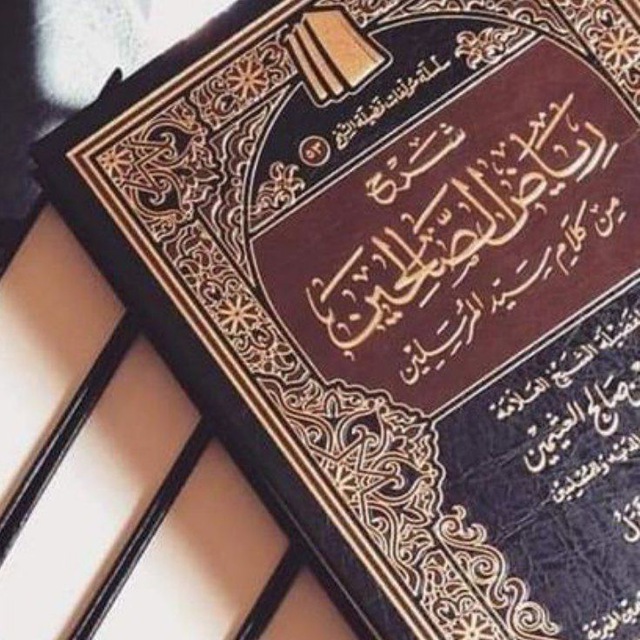 سلسلة مؤلفات فضيلة الشيخ ٥٣
شَرْحُ
رِيَاضِ الصَّالِحِين
مِنْ كَلَامِ سَيِّدِ المُرْسَلِين
لفضيلة الشيخ العلّامة
صالح العثيمين